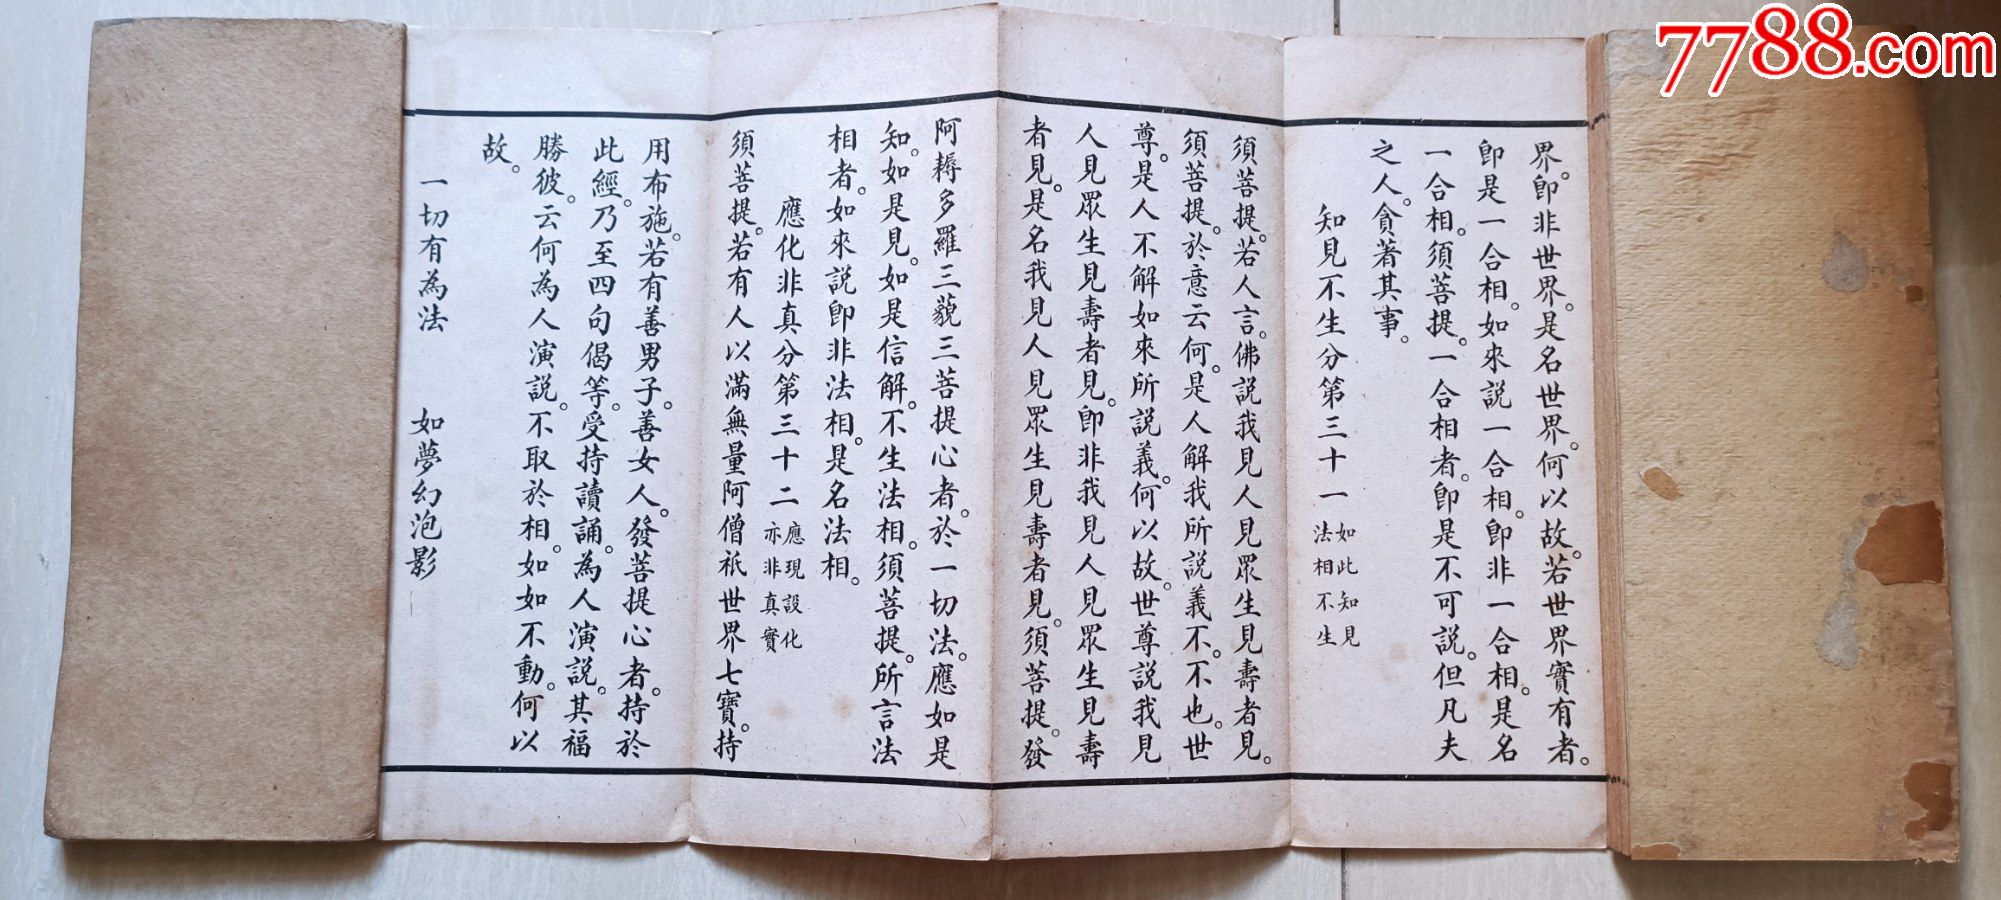 7788.com
界。卽非世界。是名世界。何以故。若世界實有者。
卽是一合相。如來說一合相。卽非一合相。是名
一合相。須菩提。一合相者。卽是不可說。但凡夫
之人。貪著其事。
知見不生分第三十一 如此知見
法相不生
須菩提。若人言。佛說我見人見眾生見壽者見。
須菩提。於意云何。是人解我所說義不。不也。世
尊。是人不解如來所說義。何以故。世尊說我見
人見眾生見壽者見。卽非我見人見眾生見壽
者見。是名我見人見眾生見壽者見。須菩提。發
阿耨多羅三藐三菩提心者。於一切法。應如是
知。如是見。如是信解。不生法相。須菩提。所言法
相者。如來說卽非法相。是名法相。
應化非真分第三十二 應現設化
亦非真實
須菩提。若有人以滿無量阿僧祇世界七寶。持
用布施。若有善男子。善女人。發菩提心者。持於
此經。乃至四句偈等。受持讀誦。為人演說。其福
勝彼。云何為人演說。不取於相。如如不動。何以
故。
一切有為法 如夢幻泡影